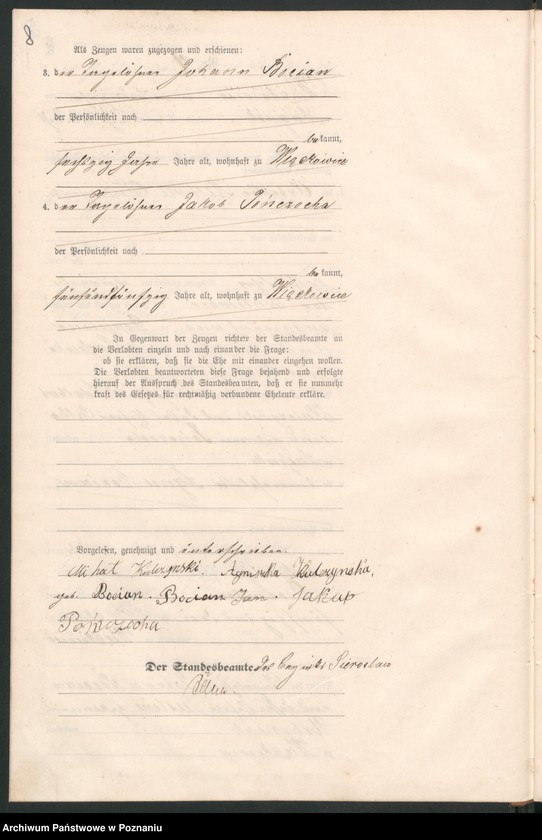 8
Als Zeugen waren zugezogen und erschienen:
3. der Tagelöhner Johann Bocian
der Persönlichkeit nach
bekannt,
sechszig Jahre Jahre alt, wohnhaft zu Więckowice
4. der Tagelöhner Jakob Pończocha
der Persönlichkeit nach
bekannt,
fünfundfünfzig Jahre alt, wohnhaft zu Więckowice
In Gegenwart der Zeugen richtete der Standesbeamte an
die Verlobten einzeln und nach einander die Frage:
ob sie erklären, daß sie die Ehe mit einander eingehen wollen.
Die Verlobten beantworteten diese Frage bejahend und erfolgte
hierauf der Ausspruch des Standesbeamten, daß er sie nunmehr
kraft des Gesetzes für rechtmäßig verbundene Eheleute erkläre.
Vorgelesen, genehmigt und unterschrieben.
Michał Kulczynski. Agniszka Kulzynska,
geb. Bocian. Bocian Jan. Jakup
Pończocha
Der Standesbeamte des Bezirks Sieroslaw
Archiwum Państwowe w Poznaniu